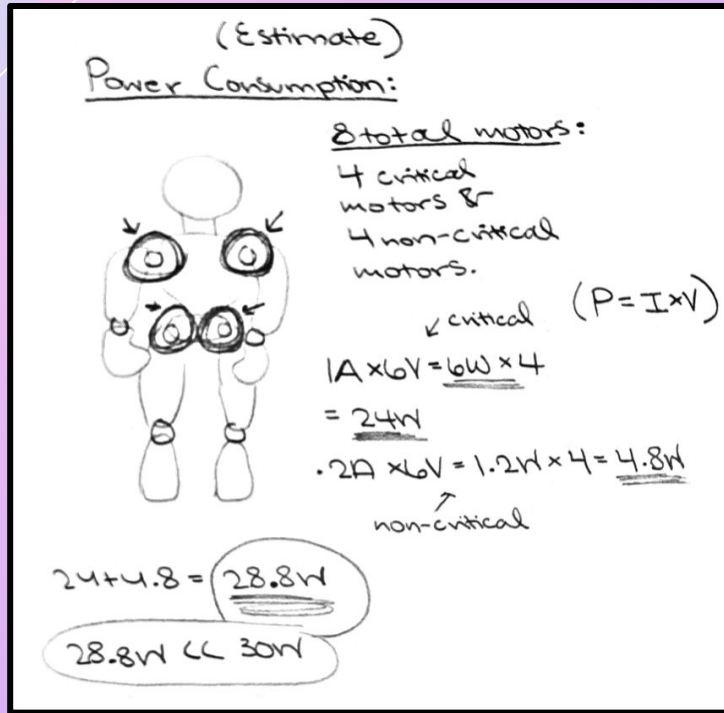 (Estimate)
Power Consumption:
8 total motors:
4 critical
motors &
4 non-critical
motors.
(P = I×V)
critical
1A ×6V = 6W × 4
= 24W
.2A ×6V = 1.2W × 4 = 4.8W
non-critical
24+4.8 = 28.8W
28.8W << 30W